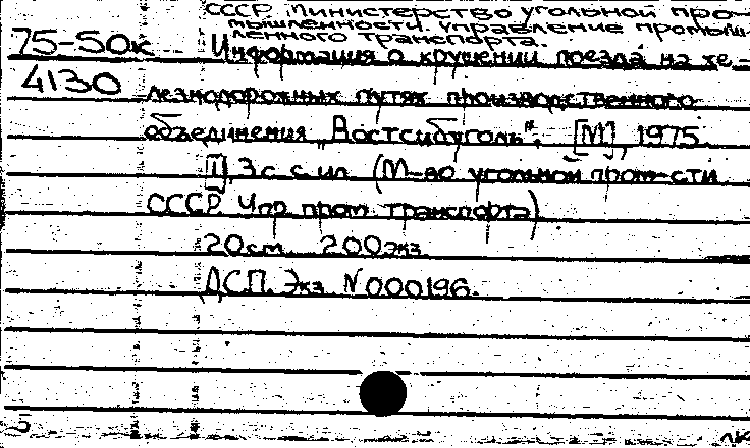 СССР. Министерство угольной про-
мышленности. Управление промыш-
ленного транспорта.
75-50к
Информация о крушении поезда на же-
4130
лезнодорожных путях производственного
объединения „Востсибуголь". [М], 1975.
[1], 3 с. с ил. (М-во угольной пром-сти
СССР. Упр. пром. транспорта)
20см. 200экз.
ДСП. Экз. N000196.